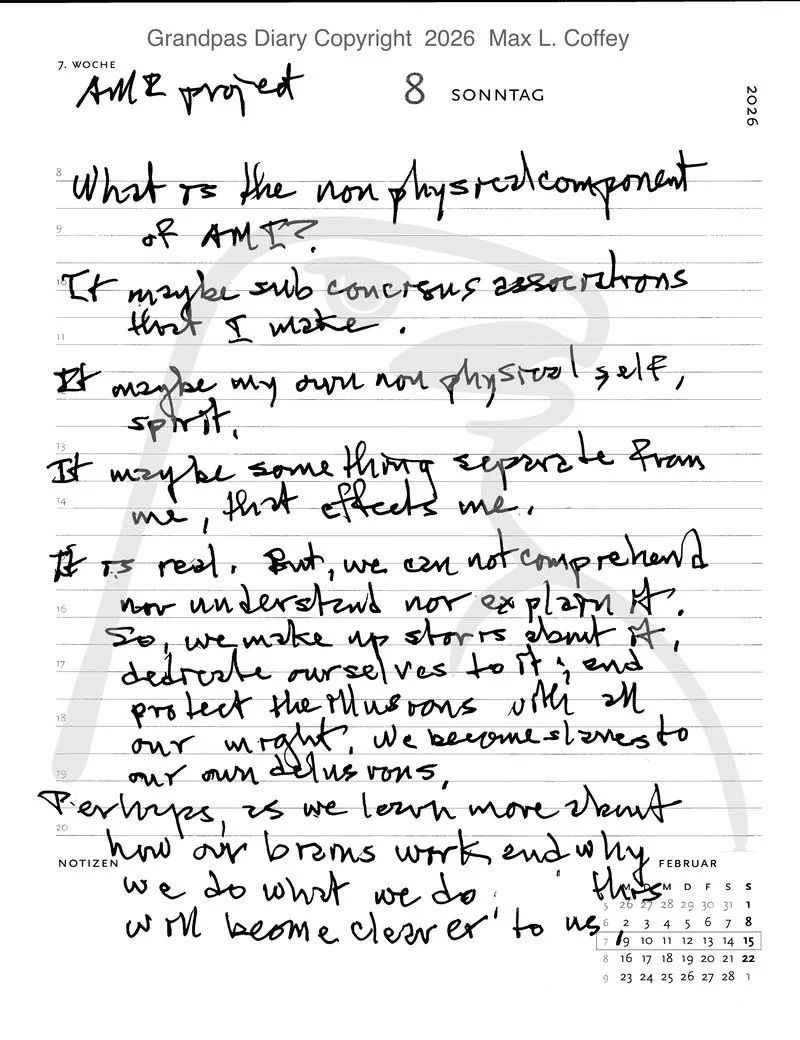 Grandpas Diary Copyright 2026 Max L. Coffey
7. WOCHE
AMI project
8 SONNTAG
2026
8
What is the non physical component
9
of AMI?
10
It maybe sub concisus associations
that I make.
11
It maybe my own non physical self,
12
spirit.
13
It maybe something separate from
14
me, that effects me.
It is real. But, we can not comprehend
16
nor understand nor explain it.
So, we make up storis about it,
17
dedicate ourselves to it; and
protect the illusions with all
18
our might. We become slaves to
19
our own delusions.
Perhaps, as we learn more about
20
how our brains work and why
NOTIZEN
we do what we do this
will become clearer to us.
FEBRUAR
M D M D F S S
5 26 27 28 29 30 31 1
6 2 3 4 5 6 7 8
7 9 10 11 12 13 14 15
8 16 17 18 19 20 21 22
9 23 24 25 26 27 28 1